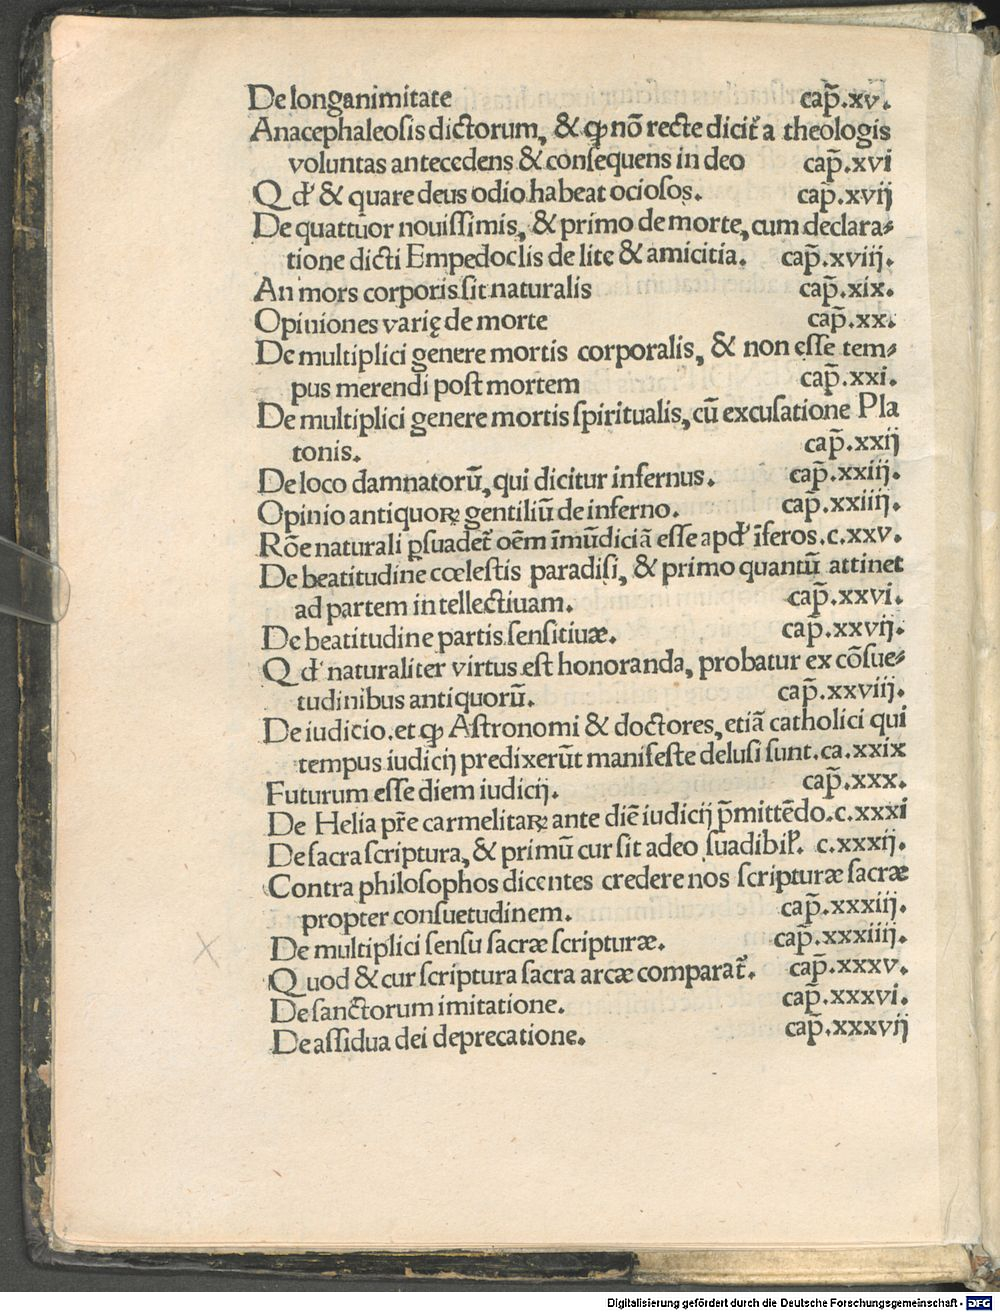 De longanimitate cap̃.xv.
Anacephaleosis dictorum, & ꝙ nõ recte dicit᷑ a theologis
voluntas antecedens & consequens in deo cap̃.xvi
Q d' & quare deus odio habeat ociosos. cap̃.xvij
De quattuor nouissimis, & primo de morte, cum declara⸗
tione dicti Empedoclis de lite & amicitia. cap̃.xviij.
An mors corporis sit naturalis cap̃.xix.
Opiniones varię de morte cap̃.xx.
De multiplici genere mortis corporalis, & non esse tem⸗
pus merendi post mortem cap̃.xxi.
De multiplici genere mortis spiritualis, cũ excusatione Pla
tonis. cap̃.xxij
De loco damnatorũ, qui dicitur infernus. cap̃.xxiij.
Opinio antiquoꝝ gentiliũ de inferno. cap̃.xxiiij.
Rõe naturali ꝑsuadet᷑ oẽm ĩmũdiciã esse apd' ĩferos.c.xxv.
De beatitudine cœlestis paradisi, & primo quantũ attinet
ad partem intellectiuam. cap̃.xxvi.
De beatitudine partis sensitiuæ. cap̃.xxvij.
Q d' naturaliter virtus est honoranda, probatur ex cõsue⸗
tudinibus antiquorũ. cap̃.xxviij.
De iudicio. et ꝙ Astronomi & doctores, etiã catholici qui
tempus iudicij predixerũt manifeste delusi sunt.ca.xxix
Futurum esse diem iudicij. cap̃.xxx.
De Helia pr̃e carmelitaꝝ ante diẽ iudicij p̃mittẽdo.c.xxxi
De sacra scriptura, & primũ cur sit adeo suadibil'. c.xxxij.
Contra philosophos dicentes credere nos scripturæ sacræ
propter consuetudinem. cap̃.xxxiij.
De multiplici sensu sacræ scripturæ. cap̃.xxxiiij.
Quod & cur scriptura sacra arcæ comparat᷑. cap̃.xxxv.
De sanctorum imitatione. cap̃.xxxvi.
De assidua dei deprecatione. cap̃.xxxvij
Digitalisierung gefördert durch die Deutsche Forschungsgemeinschaft - DFG